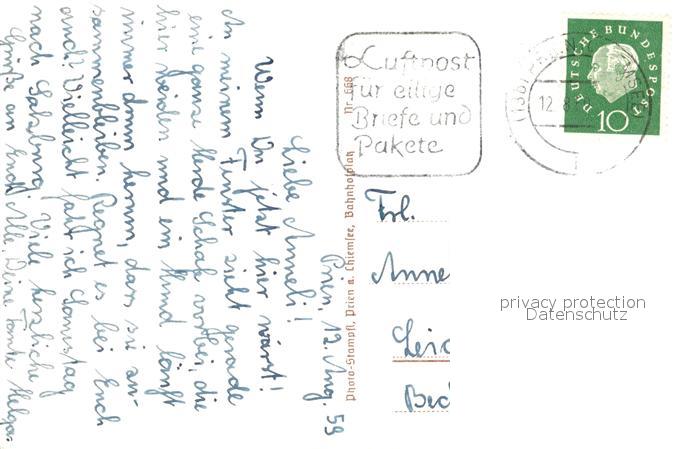 Prien, 12. Aug. 59
Liebe Anneli!
Wenn Du jetzt hier wärst!
An meinem Fenster zieht gerade
eine ganze Herde Schafe vorbei, die
hier weiden und ein Hund läuft
immer drum herum, dass sie zu-
sammenbleiben. Regnet es bei Euch
auch? Vielleicht fahr ich Samstag
nach Salzburg. Viele herzliche
Grüße an Euch Alle, Deine Tante Helga.
Photo-Stampfl, Prien a. Chiemsee, Bahnhofplatz Nr. 668
Luftpost
für eilige
Briefe und
Pakete
12. 8.
DEUTSCHE BUNDESPOST
10
Frl.
Anne
privacy protection
Datenschutz